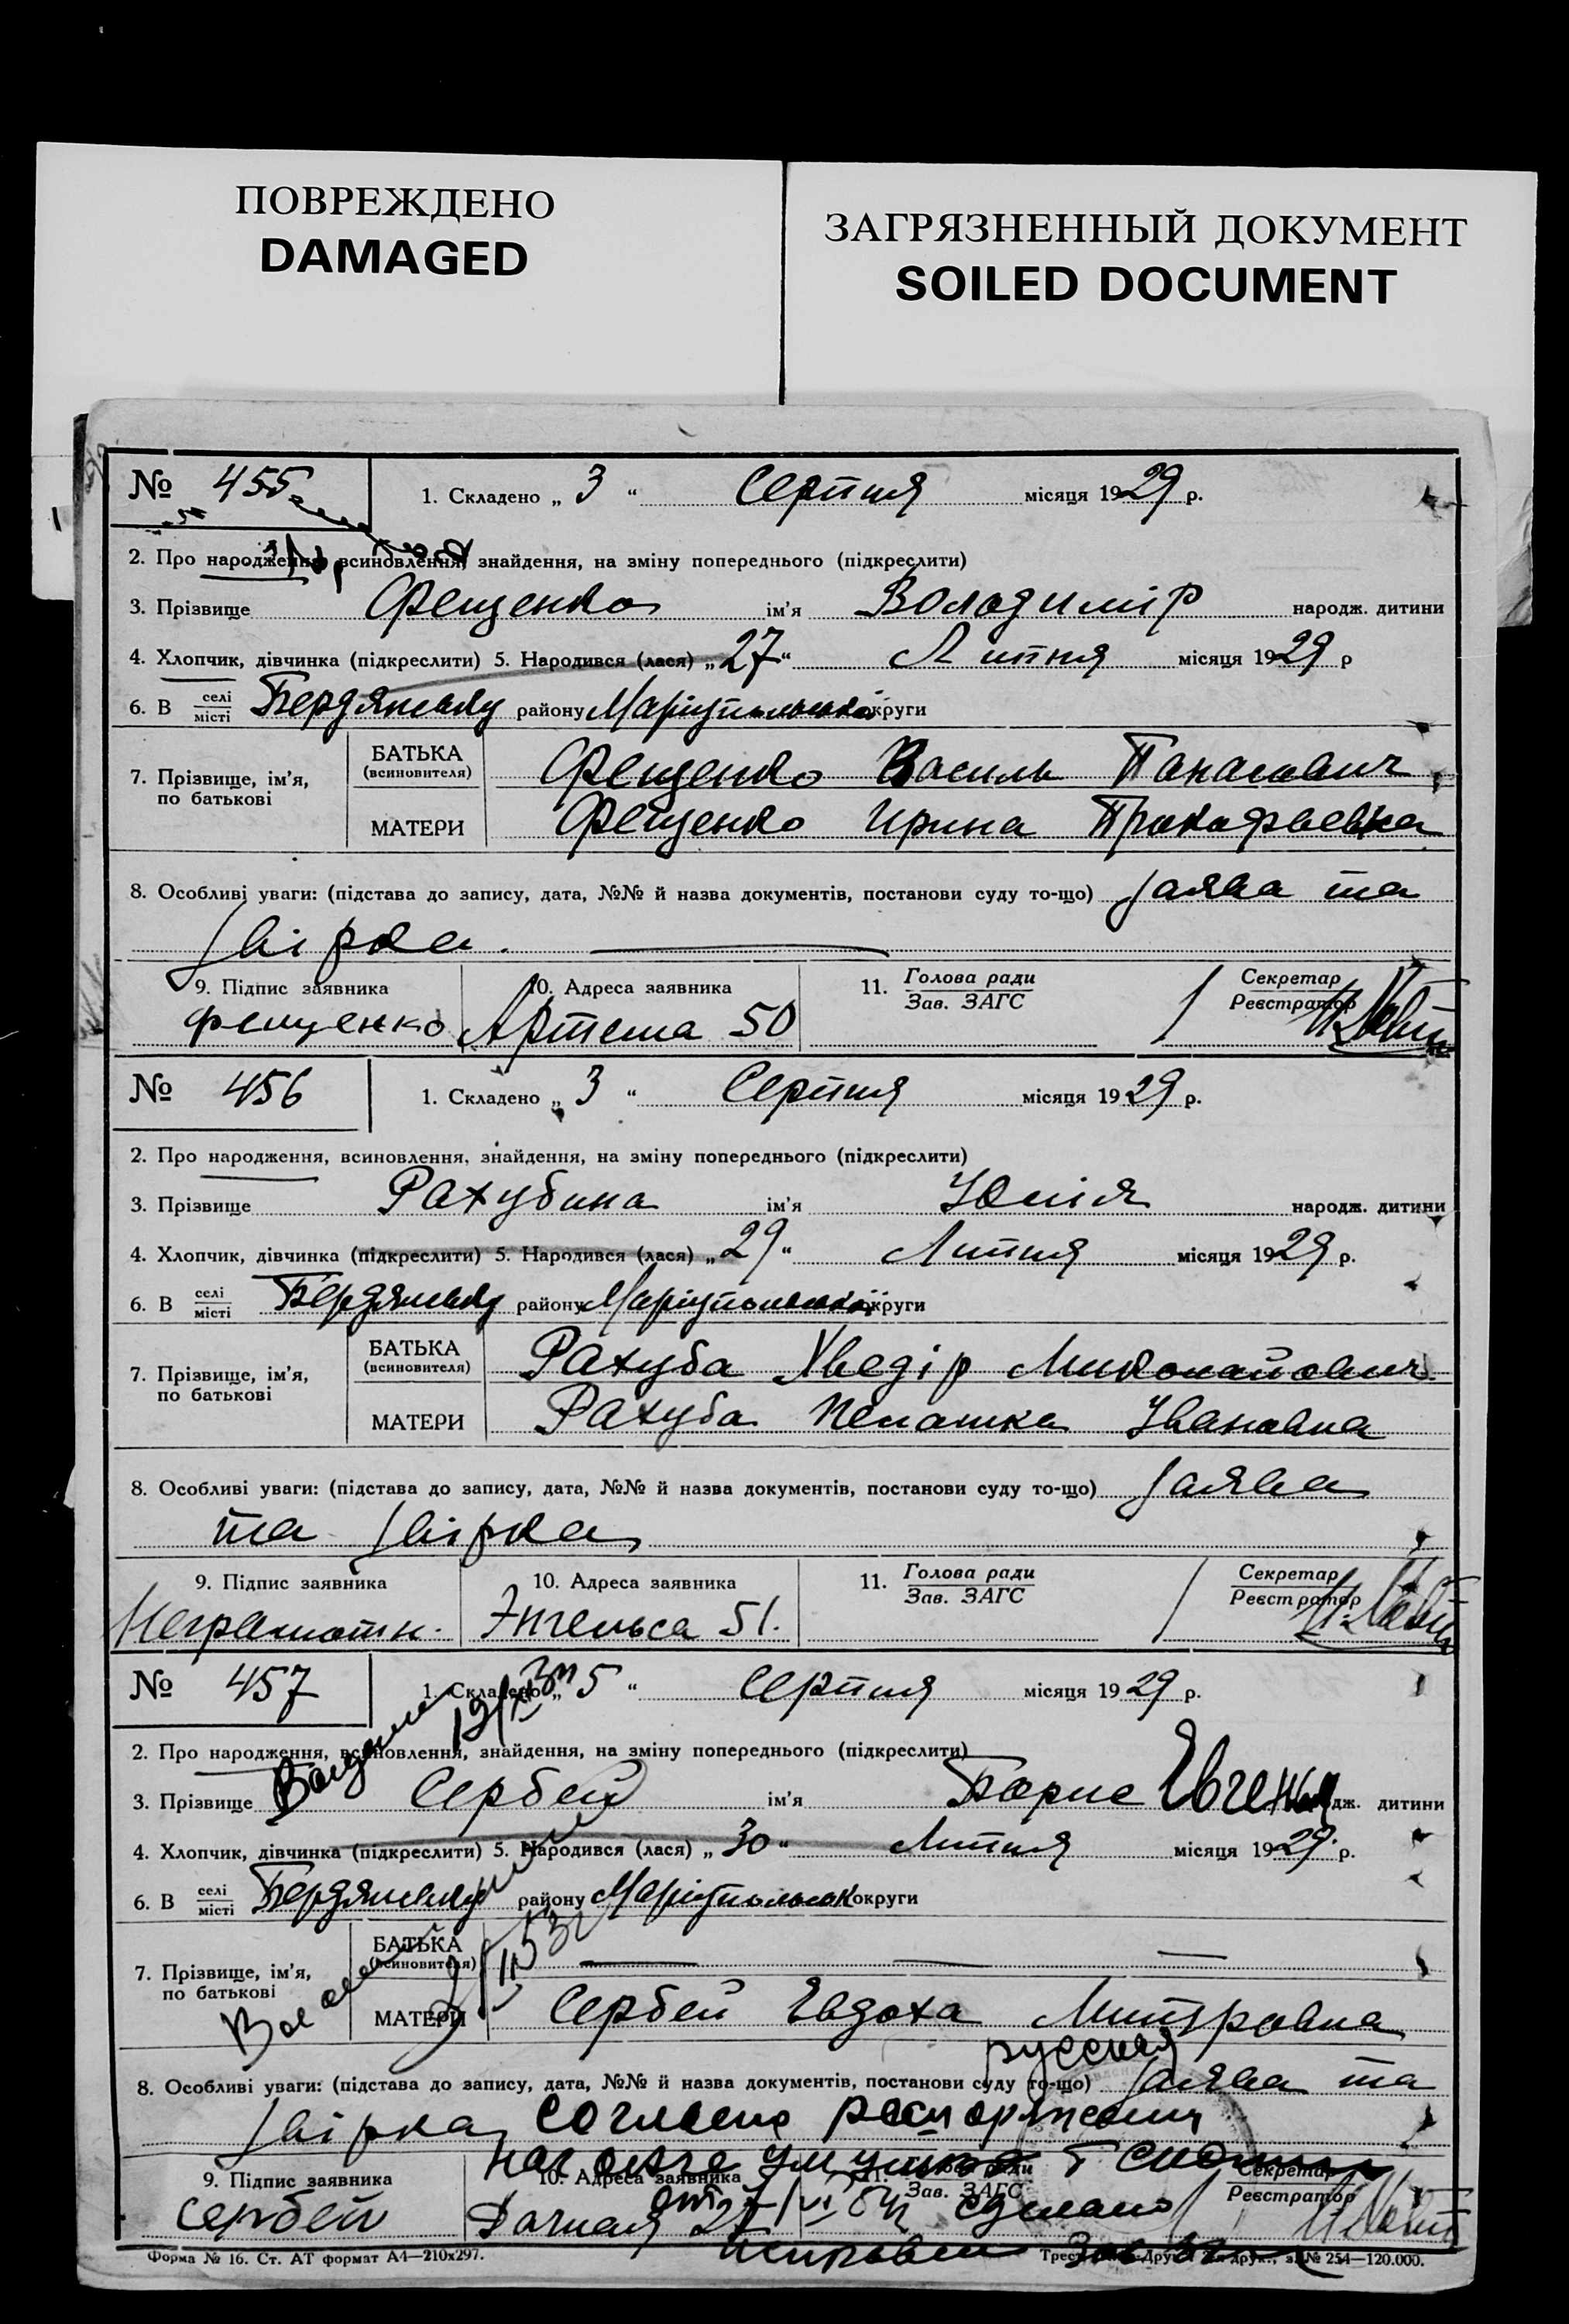 ПОВРЕЖДЕНО
DAMAGED
ЗАГРЯЗНЕННЫЙ ДОКУМЕНТ
SOILED DOCUMENT
№ 455 1. Складено „ 3 “ Серпня місяця 1929 р.
2. Про народження, всиновлення, знайдення, на зміну попереднього (підкреслити)
3. Прізвище Фещенко ім’я Володимір народж. дитини
4. Хлопчик, дівчинка (підкреслити) 5. Народився (лася) „ 27 “ Липня місяця 1929 р
6. В селі місті Бердянську району Маріупольської округи
7. Прізвище, ім’я, по батькові
БАТЬКА (всиновителя) Фещенко Василь Панасович
МАТЕРИ Фещенко Ирина Прокофьевна
8. Особливі уваги: (підстава до запису, дата, №№ й назва документів, постанови суду то-що) Заява та
звірка.
9. Підпис заявника 10. Адреса заявника 11. Голова ради Зав. ЗАГС Секретар Реєстратор
Фещенко Артема 50
№ 456 1. Складено „ 3 “ Серпня місяця 1929 р.
2. Про народження, всиновлення, знайдення, на зміну попереднього (підкреслити)
3. Прізвище Рахубина ім’я Юлія народж. дитини
4. Хлопчик, дівчинка (підкреслити) 5. Народився (лася) „ 29 “ Липня місяця 1929 р.
6. В селі місті Бердянську району Маріупольської округи
7. Прізвище, ім’я, по батькові
БАТЬКА (всиновителя) Рахуба Хведір Миколайович
МАТЕРИ Рахуба Пелашка Івановна
8. Особливі уваги: (підстава до запису, дата, №№ й назва документів, постанови суду то-що) Заява
та звірка
9. Підпис заявника 10. Адреса заявника 11. Голова ради Зав. ЗАГС Секретар Реєстратор
Неграмотн. Энгельса 51.
№ 457 1. Складено „ 5 “ Серпня місяця 1929 р.
2. Про народження, всиновлення, знайдення, на зміну попереднього (підкреслити)
3. Прізвище Сербей ім’я Борис Євгений народж. дитини
4. Хлопчик, дівчинка (підкреслити) 5. Народився (лася) „ 30 “ Липня місяця 1929 р.
6. В селі місті Бердянську району Маріупольськ округи
7. Прізвище, ім’я, по батькові
БАТЬКА (всиновителя)
МАТЕРИ Сербей Евдоха Митровна
русская
8. Особливі уваги: (підстава до запису, дата, №№ й назва документів, постанови суду то-що) Заява та
звірка согласно распоряжения
9. Підпис заявника 10. Адреса заявника Зав. ЗАГС Секретар Реєстратор
Сербей Дачная 27 сделано
Форма № 16. Ст. АТ формат А4—210х297. № 254—120.000.